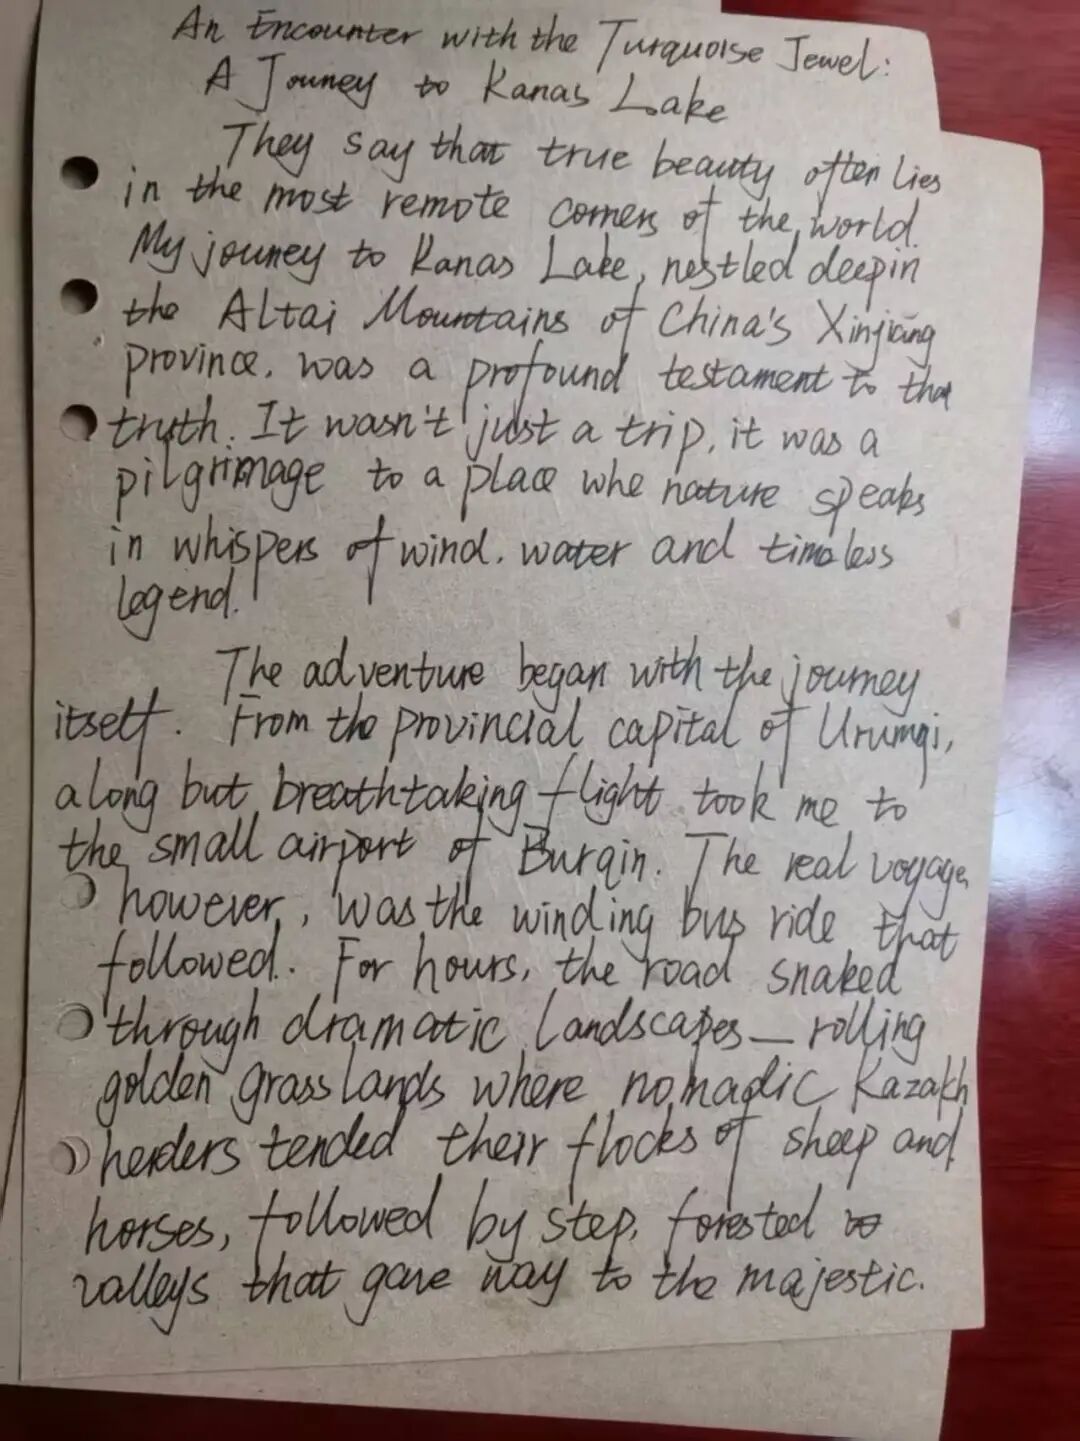 An Encounter with the Turquoise Jewel:
A Jouney to Kanas Lake
They say that true beauty often lies
in the most remote corners of the world.
My jouney to Kanas Lake, nestled deep in
the Altai Mountains of China's Xinjiang
province, was a profound testament to that
truth. It wasn't just a trip, it was a
pilgrimage to a place whe nature speaks
in whispers of wind, water and timeless
legend.
The adventure began with the journey
itself. From the provincial capital of Urumqi,
a long but breathtaking flight took me to
the small airport of Burqin. The real voyage,
however, was the winding bus ride that
followed. For hours, the road snaked
through dramatic landscapes — rolling
golden grasslands where nomadic Kazakh
herders tended their flocks of sheep and
horses, followed by step, forested
valleys that gave way to the majestic.